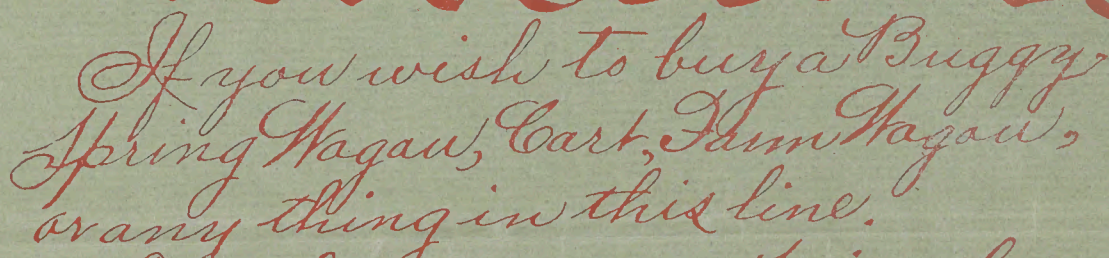 If you wish to buy a Buggy
Spring Wagon, Cart, Farm Wagon,
or any thing in this line.